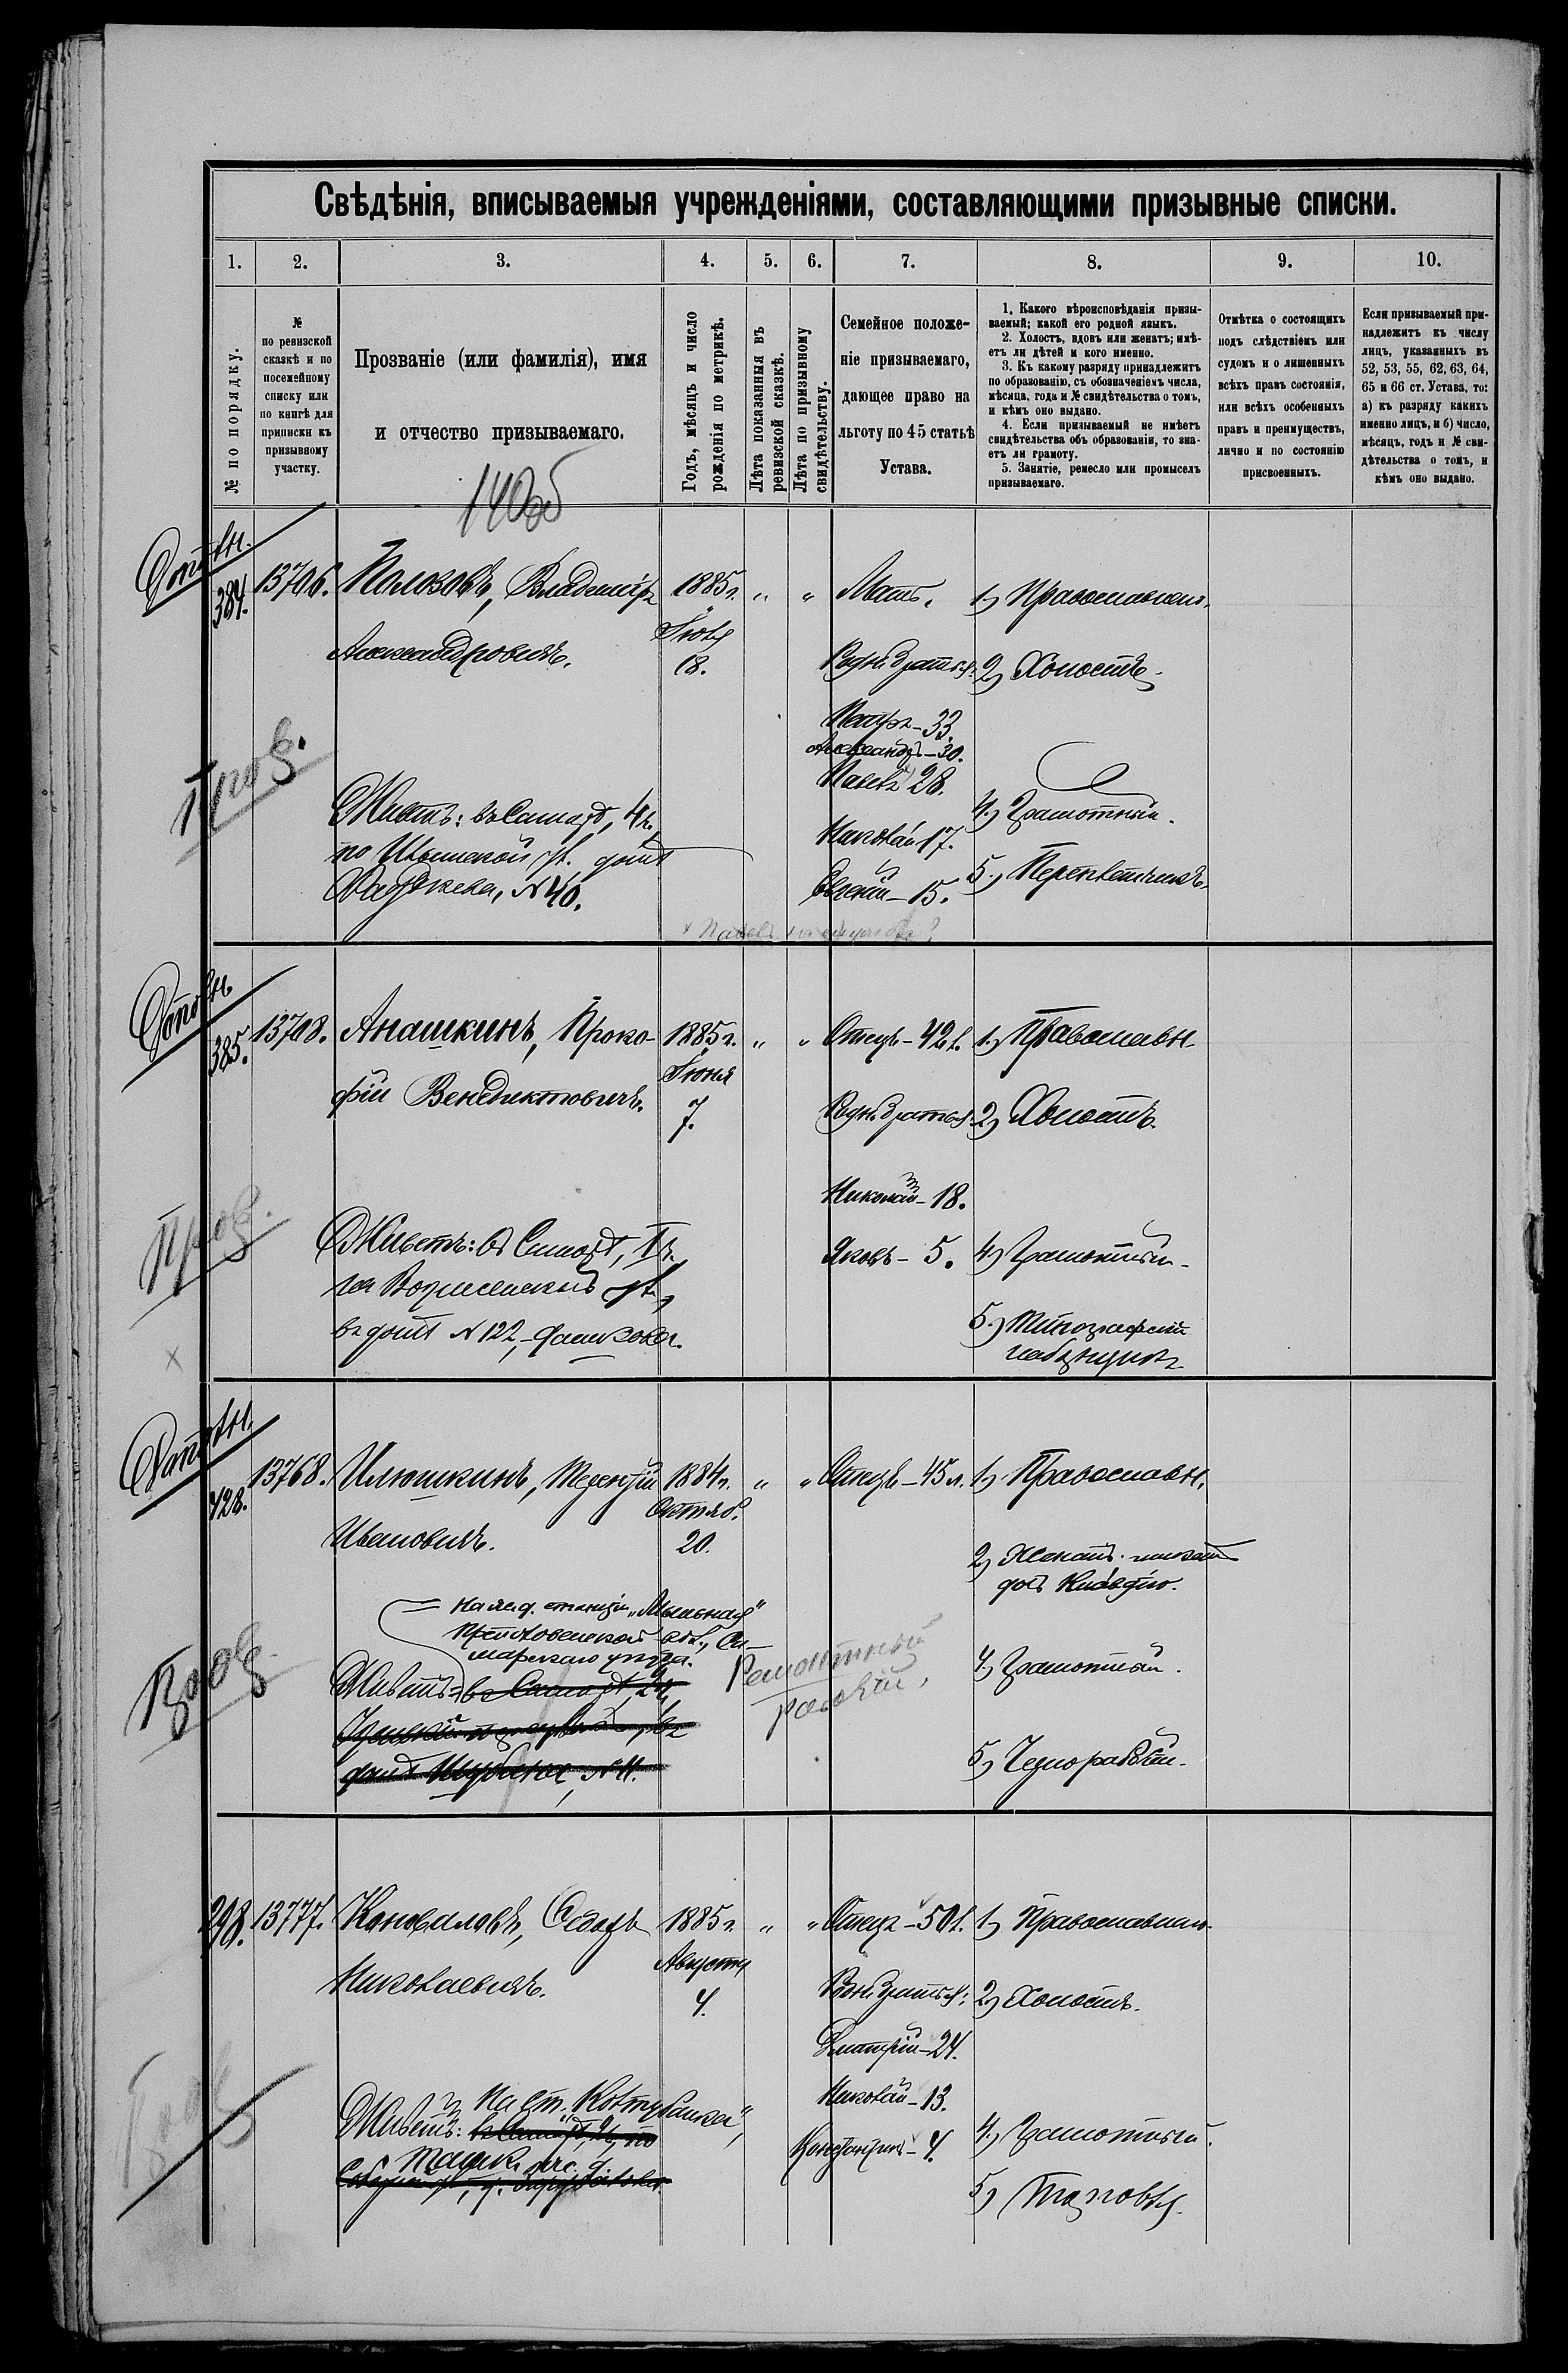 Свѣдѣнія, вписываемыя учрежденіями, составляющими призывные списки.
1. 2. 3. 4. 5. 6. 7. 8. 9. 10.
№ по порядку.
№
по ревизской
сказкѣ и по
посемейному
списку или
по книгѣ для
приписки къ
призывному
участку.
Прозваніе (или фамилія), имя
и отчество призываемаго.
Годъ, мѣсяцъ и число
рожденія по метрикѣ.
Лѣта показанныя въ
ревизской сказкѣ.
Лѣта по призывному
свидѣтельству.
Семейное положе-
ніе призываемаго,
дающее право на
льготу по 45 статьѣ
Устава.
1. Какого вѣроисповѣданія призы-
ваемый; какой его родной языкъ.
2. Холостъ, вдовъ или женатъ; имѣ-
етъ ли дѣтей и кого именно.
3. Къ какому разряду принадлежитъ
по образованію, съ обозначеніемъ числа,
мѣсяца, года и № свидѣтельства о томъ,
и кѣмъ оно выдано.
4. Если призываемый не имѣетъ
свидѣтельства объ образованіи, то зна-
етъ ли грамоту.
5. Занятіе, ремесло или промыселъ
призываемаго.
Отмѣтка о состоящихъ
подъ слѣдствіемъ или
судомъ и о лишенныхъ
всѣхъ правъ состоянія,
или всѣхъ особенныхъ
правъ и преимуществъ,
лично и по состоянію
присвоенныхъ.
Если призываемый при-
надлежитъ къ числу
лицъ, указанныхъ въ
52, 53, 55, 62, 63, 64,
65 и 66 ст. Устава, то:
а) къ разряду какихъ
именно лицъ, и б) число,
мѣсяцъ, годъ и № сви-
дѣтельства о томъ, и
кѣмъ оно выдано.
140об
384.
13706.
Полозовъ, Владиміръ
Александровичъ.
1885 г.
18.
„ „
Мать.
Родн. братья:
Петръ – 33.
Александръ – 30.
Павелъ 28.
Николай 17.
Евгеній – 15.
1) Православн.
2) Холостъ.
4.) Грамотный.
5.) Переплетчикъ.
Живетъ: въ Самарѣ, 4 ч.
по Ильинской ул., домъ
№ 40.
Пров.
385.
13708.
Анашкинъ, Проко-
фій Венедиктовичъ.
1885 г.
Іюня
7.
„ „
Отецъ – 42 л.
Родн. братья:
Николай – 18.
Яковъ – 5.
1.) Православн.
2) Холостъ.
4) Грамотный.
5.) Типографскій
наборщикъ
Живетъ: въ Самарѣ, I ч.
на Вознесенской ул.,
въ домѣ № 122,
Пров.
428.
13768.
Илюшкинъ, Терентій
Ивановичъ.
1884 г.
Октяб.
20.
„ „
Отецъ – 45 л.
1) Православн.
2) Женатъ
дочь Клавдію.
4) Грамотный.
5) Чернорабочій.
На жел. д. станціи „Мыльная“
волости, Са-
марскаго уѣзда.
Живетъ: въ Самарѣ, 2 ч.
№ 11.
Ремонтный
рабочій,
298.
13777.
Коноваловъ, Ѳедоръ
Николаевичъ.
1885 г.
Августа
4.
„ „
Отецъ – 50 л.
Родн. братья:
Дмитрій – 24.
Николай – 13.
Константинъ – 4.
1) Православн.
2) Холостъ.
4.) Грамотный.
5) Торговля.
Живетъ: На ст. „Колтубанка“,
Ташк. ж. д.